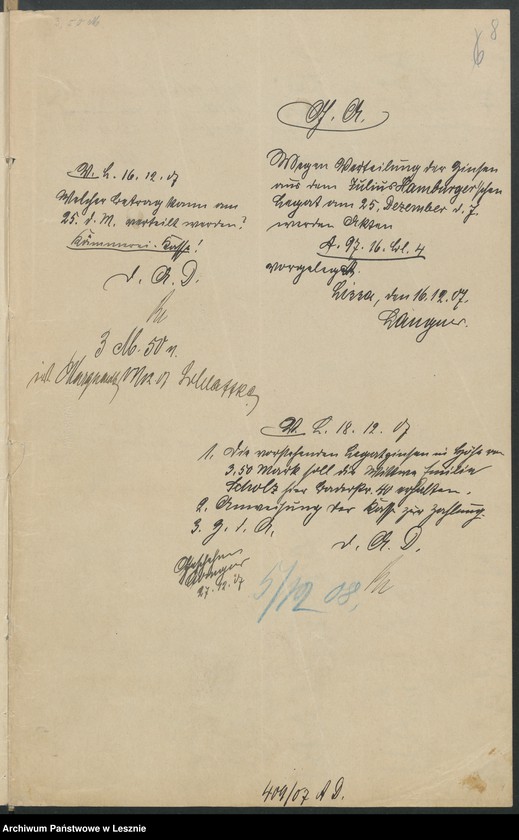 8
6
V. A.
Wegen Verteilung der Zinsen
aus dem Julius Hamburger'schen
Legat am 25. Dezember d. J.
werden Akten
A. 97. 16. Bl. 4
vorgelegt.
Lissa, den 16.12.07.
Langner.
V. L. 16.12.07
Welcher Betrag kann am
25. d. M. verteilt werden?
Kämmerei-Kasse!
D. A. D.
3 M. 50
V. L. 18.12.07
1. Die vorstehenden Legatzinsen in Höhe von
3,50 Mark soll die Witwe Emilie
Scholz hier Baderstr. 40 erhalten.
2. Anweisung der Kasse zur Zahlung.
3. Z. d. A.
D. A. D.
Geschehen
27.12.07
5/12 08.
409/07 A D.
Archiwum Państwowe w Lesznie